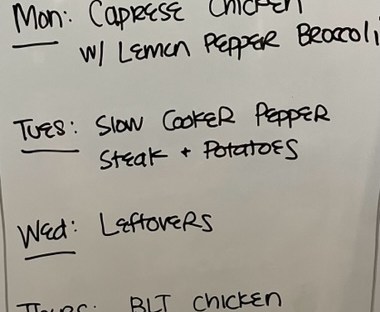 Mon: Caprese Chicken
w/ Lemon Pepper Broccoli
Tues: Slow Cooker Pepper
Steak + Potatoes
Wed: Leftovers
Thurs: BLT Chicken